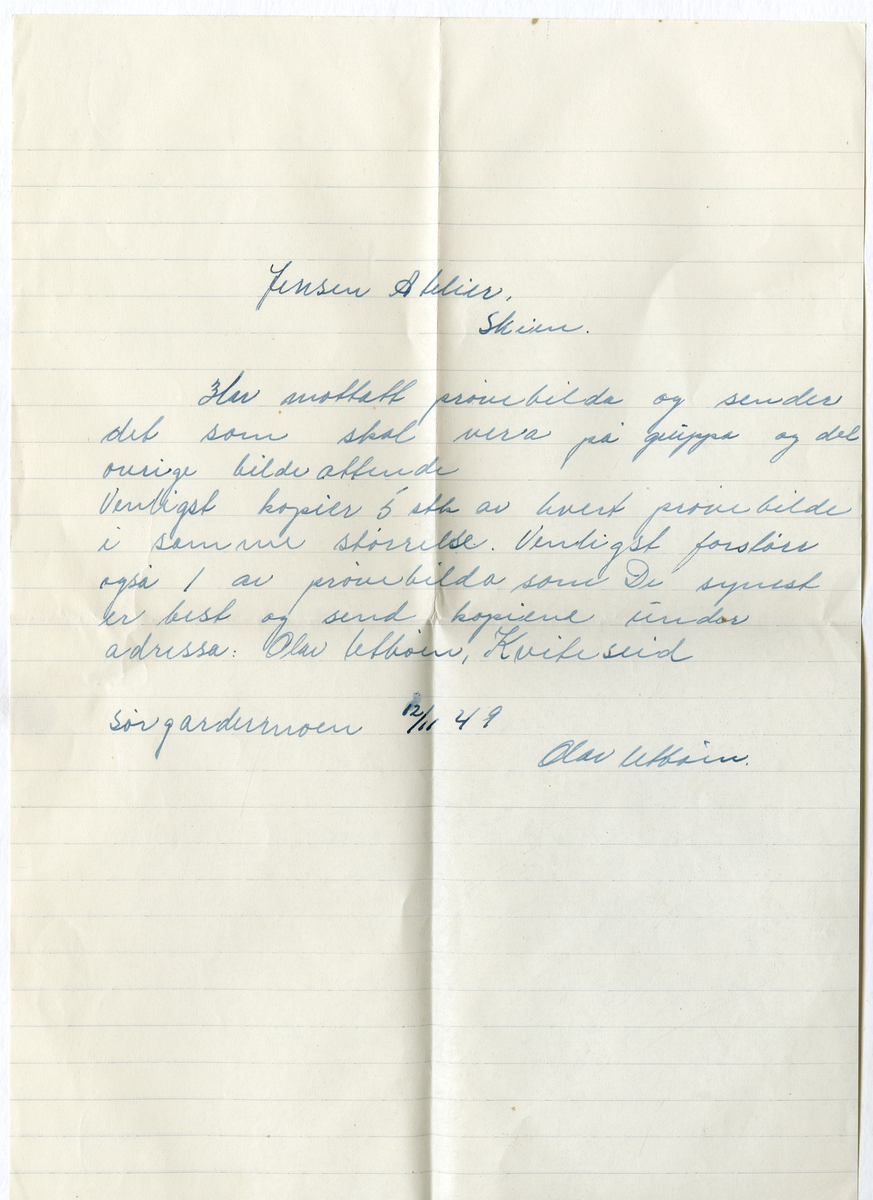 Jensen Atelier,
Skien.
Har mottatt prøvebilda og sender
det som skal vera på gruppa og det
øvrige bilde attende
Venligst kopier 5 stk av hvert prøvebilde
i samme størrelse. Venligst forstørr
også 1 av prøvebilda som De synest
er best og send kopiene under
adressa: Olav Utbøen, Kviteseid
Sørgardermoen 12/11 49
Olav Utbøen.